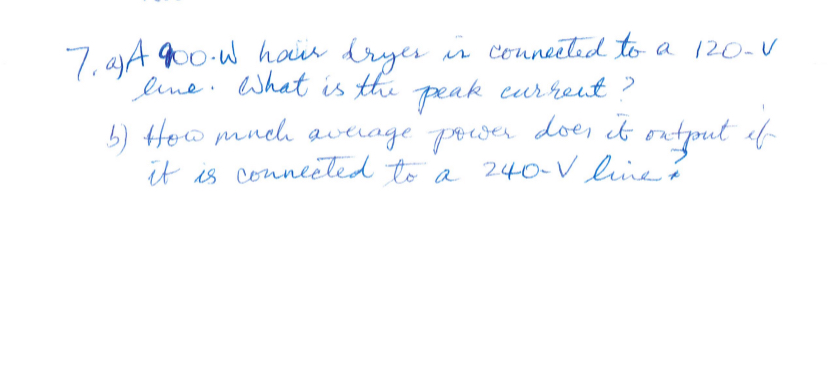 7. a) A 900-W hair dryer is connected to a 120-V
line. What is the peak current?
b) How much average power does it output if
it is connected to a 240-V line?